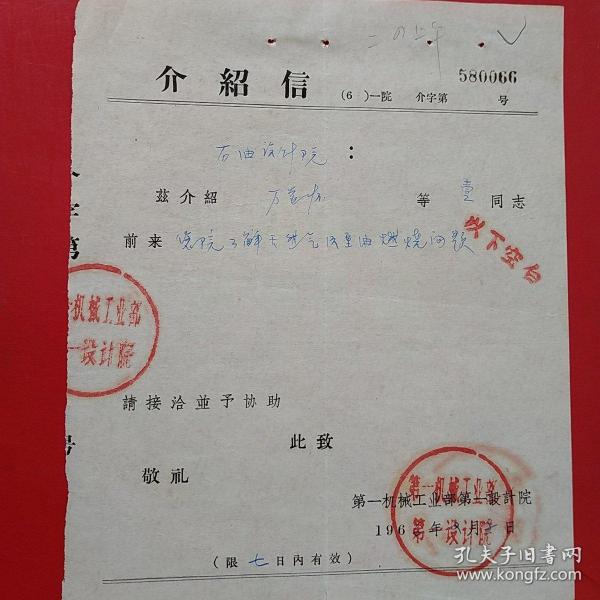 580066
介紹信
(6 )一院 介字第 号
石油设计院：
茲介紹 等壹同志
前来 贵院了解天然气及重油燃烧问题
以下空白
机械工业部
一设计院
請接洽並予协助
此致
敬礼
第一机械工业部
第一设计院
第一机械工业部第一設計院
196 年 月 日
(限七日內有效)
孔夫子旧书网
www.kongfz.com